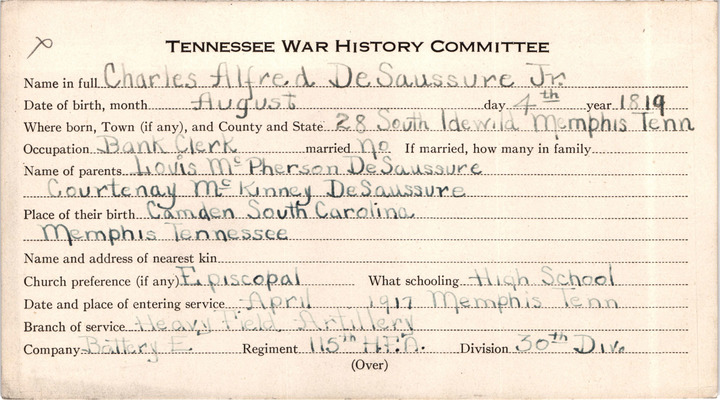 TENNESSEE WAR HISTORY COMMITTEE
Name in full Charles Alfred DeSaussure Jr.
Date of birth, month August day 4th year 1819
Where born, Town (if any), and County and State 28 South Idewild Memphis Tenn
Occupation Bank Clerk married no If married, how many in family
Name of parents Louis McPherson DeSaussure
Courtenay McKinney DeSaussure
Place of their birth Camden South Carolina
Memphis Tennessee
Name and address of nearest kin
Church preference (if any) Episcopal What schooling High School
Date and place of entering service April 1917 Memphis Tenn
Branch of service Heavy Field Artillery
Company Battery E. Regiment 115th H.F.A. Division 30th Div.
(Over)